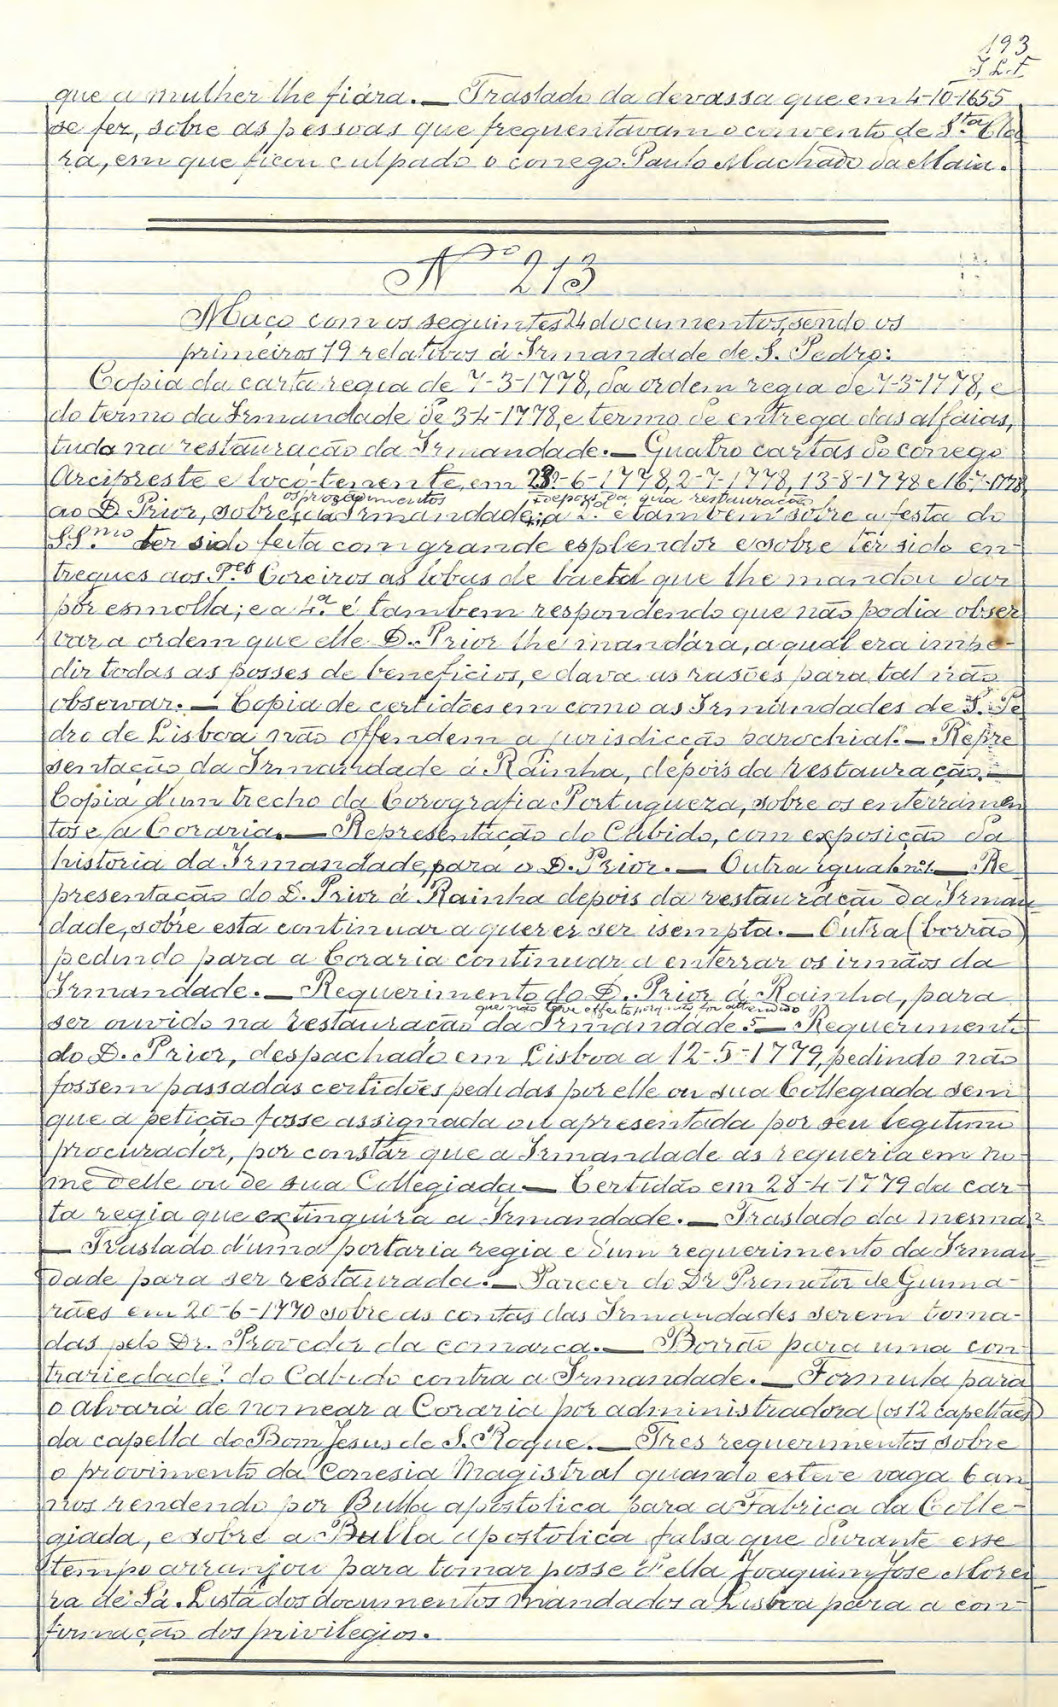 193
que a mulher lhe fiára. — Traslado da devassa que em 4-10-1655
se fez, sobre as pessoas que frequentavam o convento de S.ta Cla
ra, em que ficou culpado o conego Paulo Machado da Maia.
Nº 213
Maço com os seguintes 24 documentos, sendo os
primeiros 19 relativos á Irmandade de S. Pedro:
Copia da carta regia de 7-3-1778, da ordem regia de 7-3-1778, e
do termo da Irmandade de 3-4-1778, e termo de entrega das alfaias,
tudo na restauração da Irmandade. — Quatro cartas do conego
Arcipreste e loco-tenente, em -6-1778, 2-7-1778, 13-8-1778 e 16-7-1778,
os procedimentos depois da qua restauração
ao D. Prior, sobre a Irmandade; a 2.ª é tambem sobre a festa do
SS.mo ter sido feita com grande esplendor e sobre ter sido en-
tregues aos P.es Coreiros as lobas de baeta que lhe mandou dar
por esmolla; e a 4.ª é tambem respondendo que não podia obser
var a ordem que elle D. Prior lhe mandára, a qual era impe-
dir todas as posses de beneficios, e dava as rasões para tal não
observar. — Copia de certidões em como as Irmandades de S. Pe
dro de Lisboa não offendem a jurisdicção parochial. — Repre
sentação da Irmandade á Rainha, depois da restauração. —
Copia d'um trecho da Corografia Portugueza, sobre os enterramen
tos e a Coraria. — Representação do Cabido, com exposição da
historia da Irmandade, para o D. Prior. — Outra igual. — Re
presentação do D. Prior á Rainha depois da restauração da Irman
dade, sobre esta continuar a querer ser isempta. — Outra (borrão)
pedindo para a Coraria continuar a enterrar os irmãos da
Irmandade. — Requerimento do D. Prior á Rainha, para
que não teve effeito porq. não foi attendido
ser ouvido na restauração da Irmandade. — Requerimento
do D. Prior, despachado em Lisboa a 12-5-1779, pedindo não
fossem passadas certidões pedidas por elle ou sua Collegiada sem
que a petição fosse assignada ou apresentada por seu legitimo
procurador, por constar que a Irmandade as requeria em no-
me d'elle ou de sua Collegiada. — Certidão em 28-4-1779 da car-
ta regia que extinguira a Irmandade. — Traslado da mesma.
— Traslado d'uma portaria regia e d'um requerimento da Irman
dade para ser restaurada. — Parecer do Dr Promotor de Guima-
rães em 20-6-1770 sobre as contas das Irmandades serem toma-
das pelo Dr. Provedor da comarca. — Borrão para uma con-
trariedade? do Cabido contra a Irmandade. — Formula para
o alvará de nomear a Coraria por administradora (os 12 capellães)
da capella do Bom Jesus de S. Roque. — Tres requerimentos sobre
o provimento da Conesia Magistral quando esteve vaga 6 an
nos rendendo por Bulla apostolica para a Fabrica da Colle-
giada, e sobre a Bulla apostolica falsa que durante esse
tempo arranjou para tomar posse d'ella Joaquim Jose Morei-
ra de Sá. Lista dos documentos mandados a Lisboa para a con-
firmação dos privilegios.